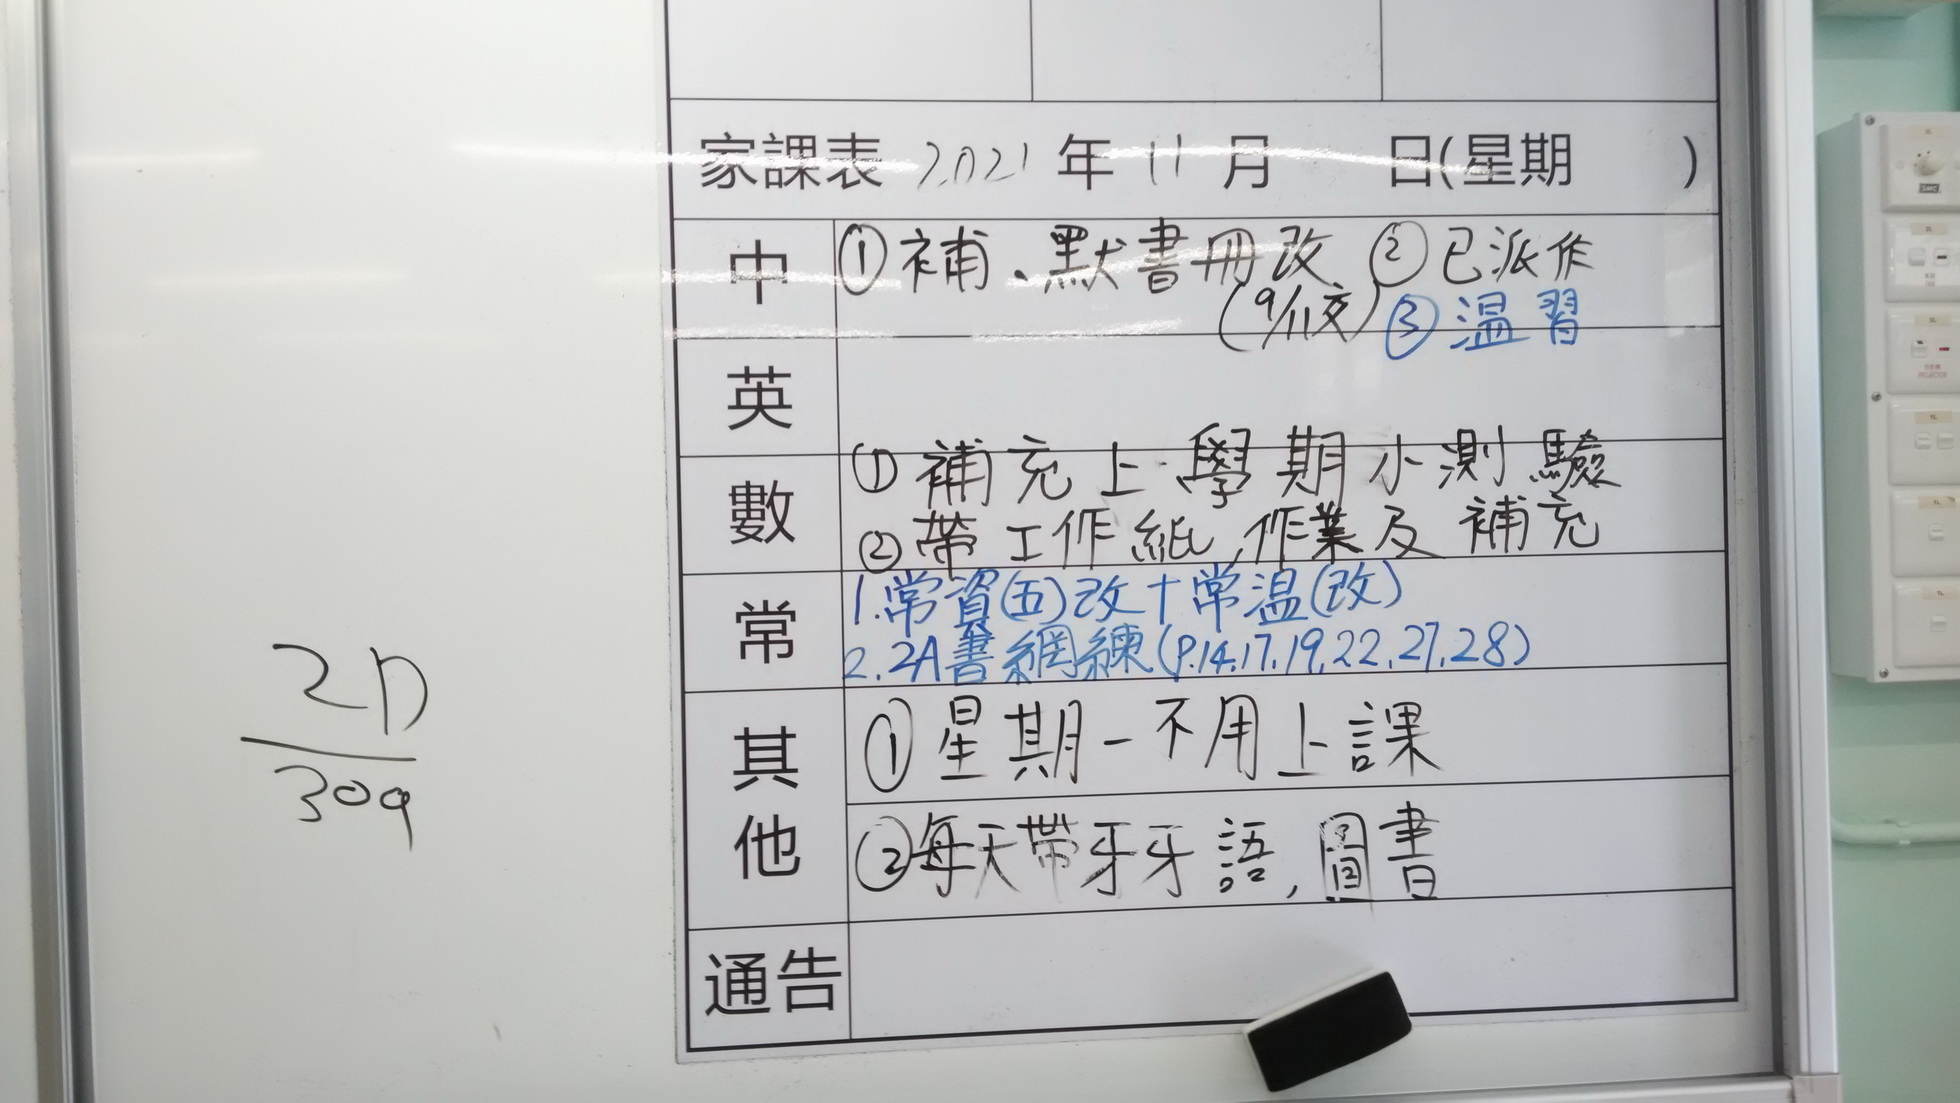 家課表 2021 年 11 月 日(星期 )
中 ①補、默書冊改 ②已派作
(9/11交) ③温習
英
數 ①補充上學期小測驗
②帶工作紙,作業及補充
常 1.常資(五)改+常温(改)
2.2A書網練(P.14,17,19,22,27,28)
其他 ①星期一不用上課
②每天帶牙牙語,圖書
通告
2D
309